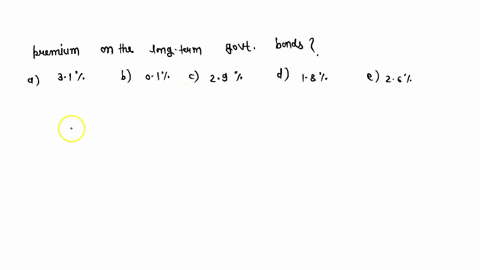 premium on the long-term govt. bonds?
a) 3.1% b) 0.1% c) 2.9% d) 1.8% e) 2.6%